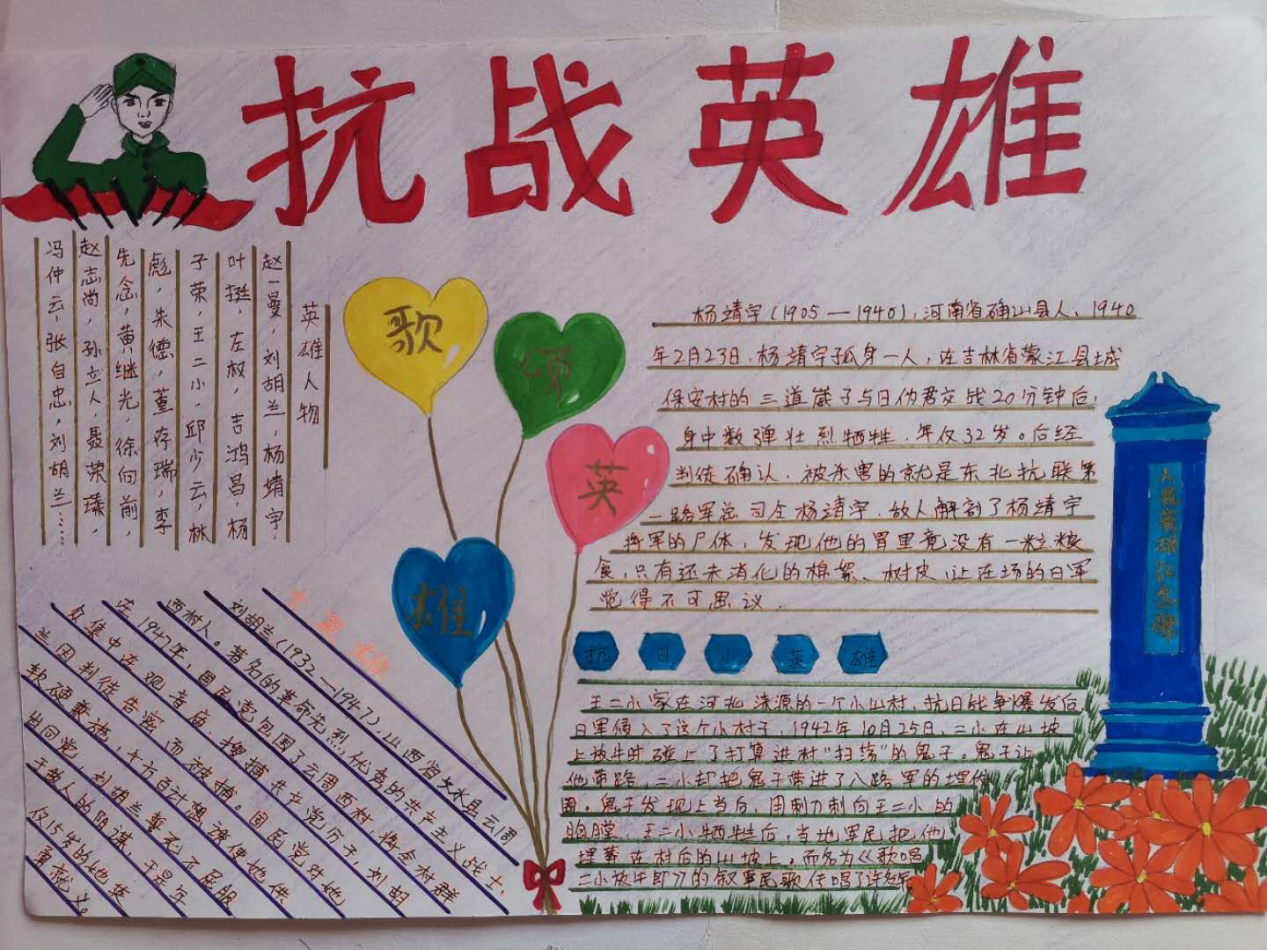 抗战英雄
英雄人物
赵一曼，刘胡兰，杨靖宇，
叶挺，左权，吉鸿昌，杨
子荣，王二小，邱少云，林
彪，朱德，董存瑞，李
先念，黄继光，徐向前，
赵志尚，孙立人，聂荣臻，
冯仲云，张自忠，刘胡兰……
歌
颂
英
雄
杨靖宇(1905—1940)，河南省确山县人、1940
年2月23日，杨靖宇孤身一人，在吉林省蒙江县城
保安村的三道崴子与日伪军交战20分钟后，
身中数弹壮烈牺牲，年仅32岁。后经
判徒确认，被杀害的就是东北抗联第
一路军总司令杨靖宇，敌人解剖了杨靖宇
将军的尸体，发现他的胃里竟没有一粒粮
食，只有还未消化的棉絮、树皮，让在场的日军
觉得不可思议．
抗日小英雄
王二小家在河北涞源的一个小山村，抗日战争爆发后
日军侵入了这个小村子，1942年10月25日、二小在山坡
上放牛时碰上了打算进村“扫荡”的鬼子。鬼子让
他带路，二小却把鬼子带进了八路军的埋伏
圈，鬼子发现上当后，用刺刀刺向王二小的
胸膛，王二小牺牲后，当地军民把他
埋葬在村后的山坡上。而名为《歌唱
二小放牛郎》的叙事民歌传唱了许多年
人民英雄纪念碑
刘胡兰(1932—1947)，山西省文水县云周
西村人。著名的革命先烈，优秀的共产主义战士，
在1947年，国民党包围了云周西村，将全村群
众集中在观音庙，搜捕共产党份子，刘胡
兰因判徒告密而被捕。国民党对她
软硬兼施，千方百计想使她供
出同党，刘胡兰誓死不屈服
于敌人的阴谋，于是年
仅15岁的她英
勇就义。